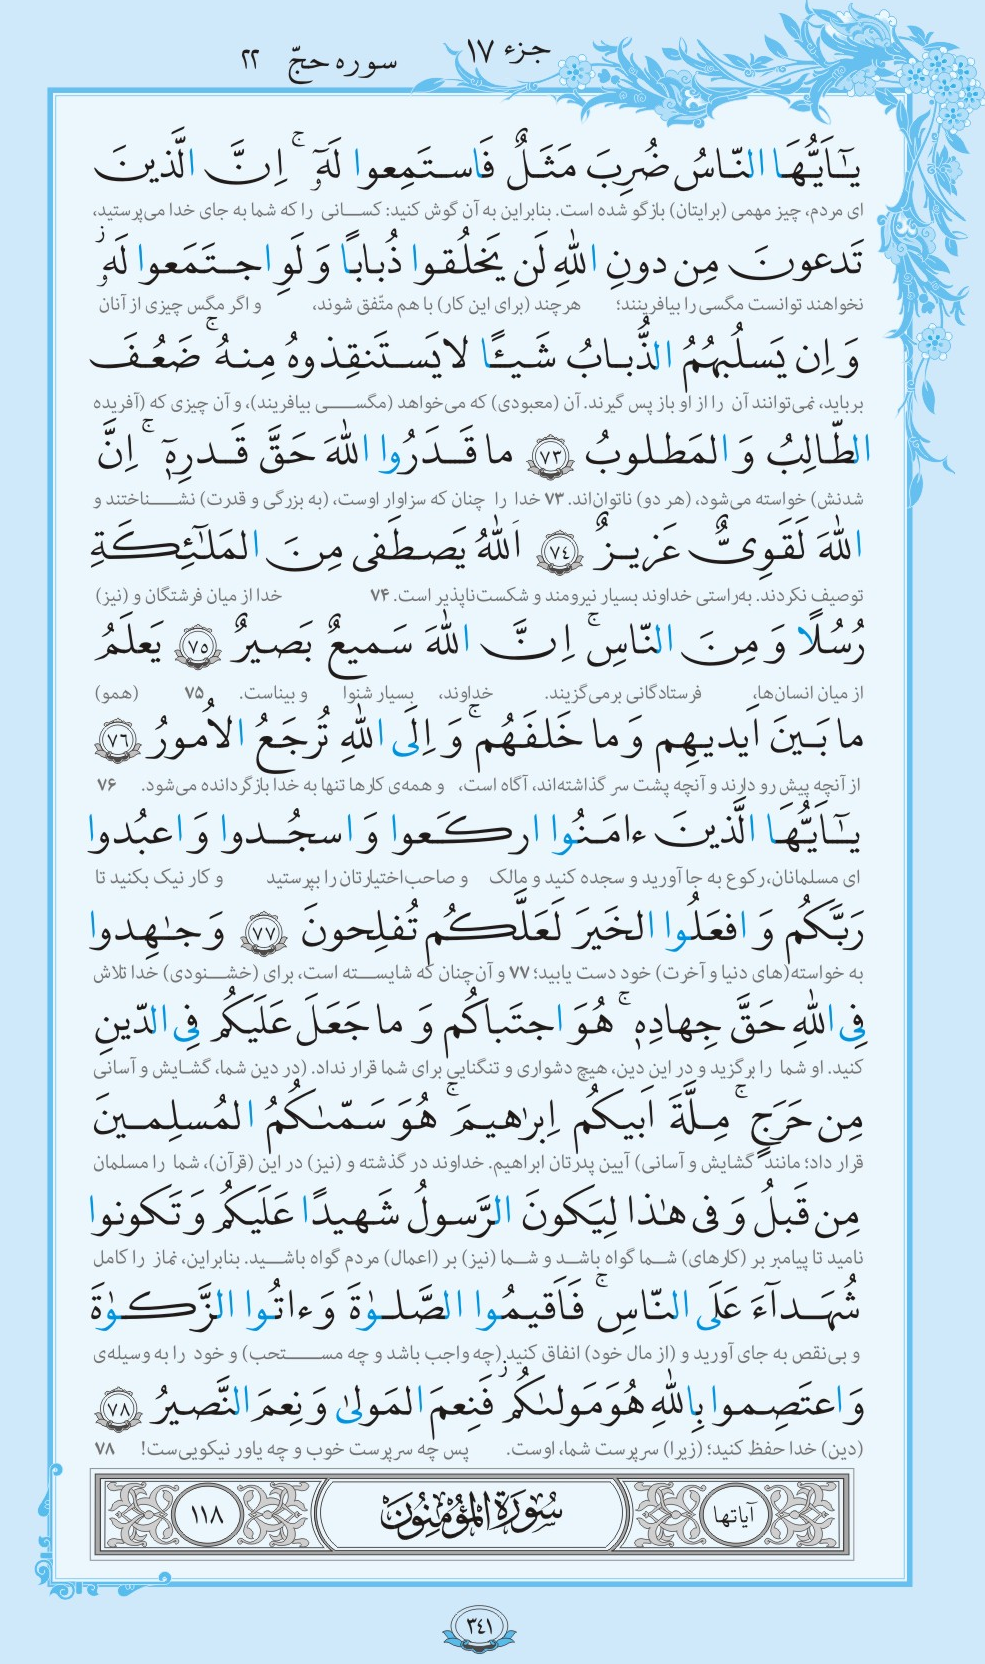 جزء ۱۷
سوره حجّ ۲۲
يـٰٓاَيُّهَا النّاسُ ضُرِبَ مَثَلٌ فَاستَمِعوا لَهٗٓ ۚ اِنَّ الَّذينَ
ای مردم، چیز مهمی (برایتان) بازگو شده است. بنابراین به آن گوش کنید: کسانی را که شما به جای خدا می‌پرستید،
تَدعونَ مِن دونِ اللّٰهِ لَن يَخلُقوا ذُبابًا وَ لَوِ اجتَمَعوا لَهٗ ز
نخواهند توانست مگسی را بیافرینند؛ هرچند (برای این کار) با هم متّفق شوند، و اگر مگس چیزی از آنان
وَ اِن يَسلُبهُمُ الذُّبابُ شَيـًٔا لايَستَنقِذوهُ مِنهُ ۚ ضَعُفَ
برباید، نمی‌توانند آن را از او باز پس گیرند. آن (معبودی) که می‌خواهد (مگسـی بیافریند)، و آن چیزی که (آفریده
الطّالِبُ وَ المَطلوبُ ﴿۷۳﴾ ما قَدَرُوا اللّٰهَ حَقَّ قَدرِهٖٓ ۚ اِنَّ
شدنش) خواسته می‌شود، (هر دو) ناتوان‌اند. ۷۳ خدا را چنان که سزاوار اوست، (به بزرگی و قدرت) نشـناختند و
اللّٰهَ لَقَوِىٌّ عَزيزٌ ﴿۷۴﴾ اَللّٰهُ يَصطَفى مِنَ المَلـٰٓئِكَةِ
توصیف نکردند. به‌راستی خداوند بسیار نیرومند و شکست‌ناپذیر است. ۷۴ خدا از میان فرشتگان و (نیز)
رُسُلًا وَ مِنَ النّاسِ ۚ اِنَّ اللّٰهَ سَميعٌ بَصيرٌ ﴿۷۵﴾ يَعلَمُ
از میان انسان‌ها، فرستادگانی برمی‌گزیند. خداوند، بسیار شنوا و بیناست. ۷۵ (همو)
ما بَينَ اَيديهِم وَ ما خَلفَهُم ۚ وَ اِلَى اللّٰهِ تُرجَعُ الاُمورُ ﴿۷۶﴾
از آنچه پیش رو دارند و آنچه پشت سر گذاشته‌اند، آگاه است، و همه‌ی کارها تنها به خدا بازگردانده می‌شود. ۷۶
يـٰٓاَيُّهَا الَّذينَ ءامَنُوا اركَعوا وَ اسجُدوا وَ اعبُدوا
ای مسلمانان، رکوع به جا آورید و سجده کنید و مالک و صاحب‌اختیارتان را بپرستید و کار نیک بکنید تا
رَبَّكُم وَ افعَلُوا الخَيرَ لَعَلَّكُم تُفلِحونَ ﴿۷۷﴾ وَ جـٰهِدوا
به خواسته(های دنیا و آخرت) خود دست یابید؛ ۷۷ و آن‌چنان که شایسـته است، برای (خشـنودی) خدا تلاش
فِى اللّٰهِ حَقَّ جِهادِهٖ ۚ هُوَ اجتَباكُم وَ ما جَعَلَ عَلَيكُم فِى الدّينِ
کنید. او شما را برگزید و در این دین، هیچ دشواری و تنگنایی برای شما قرار نداد. (در دین شما، گشایش و آسانی
مِن حَرَجٍ ۚ مِلَّةَ اَبيكُم اِبرٰهيمَ ۚ هُوَ سَمّىٰكُمُ المُسلِمينَ
قرار داد؛ مانند گشایش و آسانی) آیین پدرتان ابراهیم. خداوند در گذشته و (نیز) در این (قرآن)، شما را مسلمان
مِن قَبلُ وَ فى هٰذا لِيَكونَ الرَّسولُ شَهيدًا عَلَيكُم وَ تَكونوا
نامید تا پیامبر بر (کارهای) شـما گواه باشـد و شـما (نیز) بر (اعمال) مردم گواه باشـید. بنابراین، نماز را کامل
شُهَدآءَ عَلَى النّاسِ ۚ فَاَقيمُوا الصَّلوٰةَ وَ ءاتُوا الزَّكوٰةَ
و بی‌نقص به جای آورید و (از مال خود) انفاق کنید (چه واجب باشد و چه مسـتحب) و خود را به وسیله‌ی
وَ اعتَصِموا بِاللّٰهِ هُوَ مَولىٰكُم ز فَنِعمَ المَولىٰ وَ نِعمَ النَّصيرُ ﴿۷۸﴾
(دین) خدا حفظ کنید؛ (زیرا) سرپرست شما، اوست. پس چه سرپرست خوب و چه یاور نیکویی‌ست! ۷۸
آیاتها سُورَةُ المُؤْمِنُونَ ۱۱۸
۳۴۱